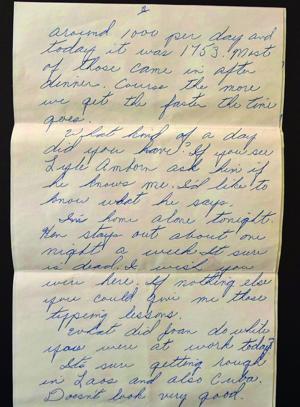 2
around 1000 per day and
today it was 1753. Most
of those came in after
dinner. Course the more
we get the faster the time
goes.
What kind of a day
did you have? If you see
Lyle Amborn ask him if
he knows me. I'd like to
know what he says.
I'm home alone tonight.
Ken stays out about one
night a week. It sure
is dead. I wish you
were here. If nothing else
you could give me those
typing lessons.
What did Jean do while
you were at work today?
Its sure getting rough
in Laos and also Cuba.
Doesn't look very good.